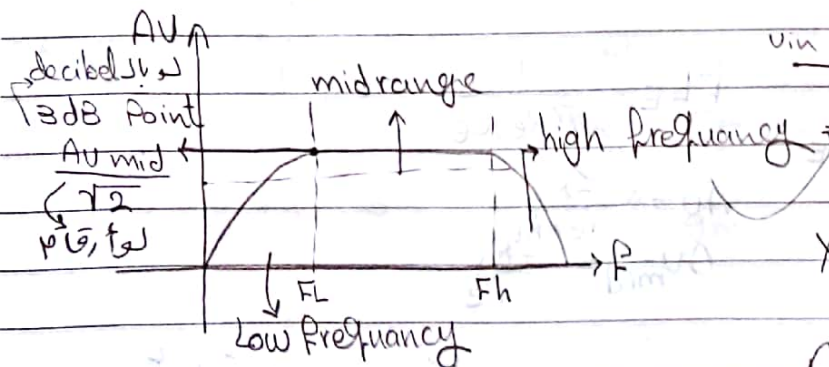 AV
Vin
لو بال decibel
3dB Point
midrange
high frequancy
AV mid
√2
لو ارقام
f
FL
Fh
Low frequancy